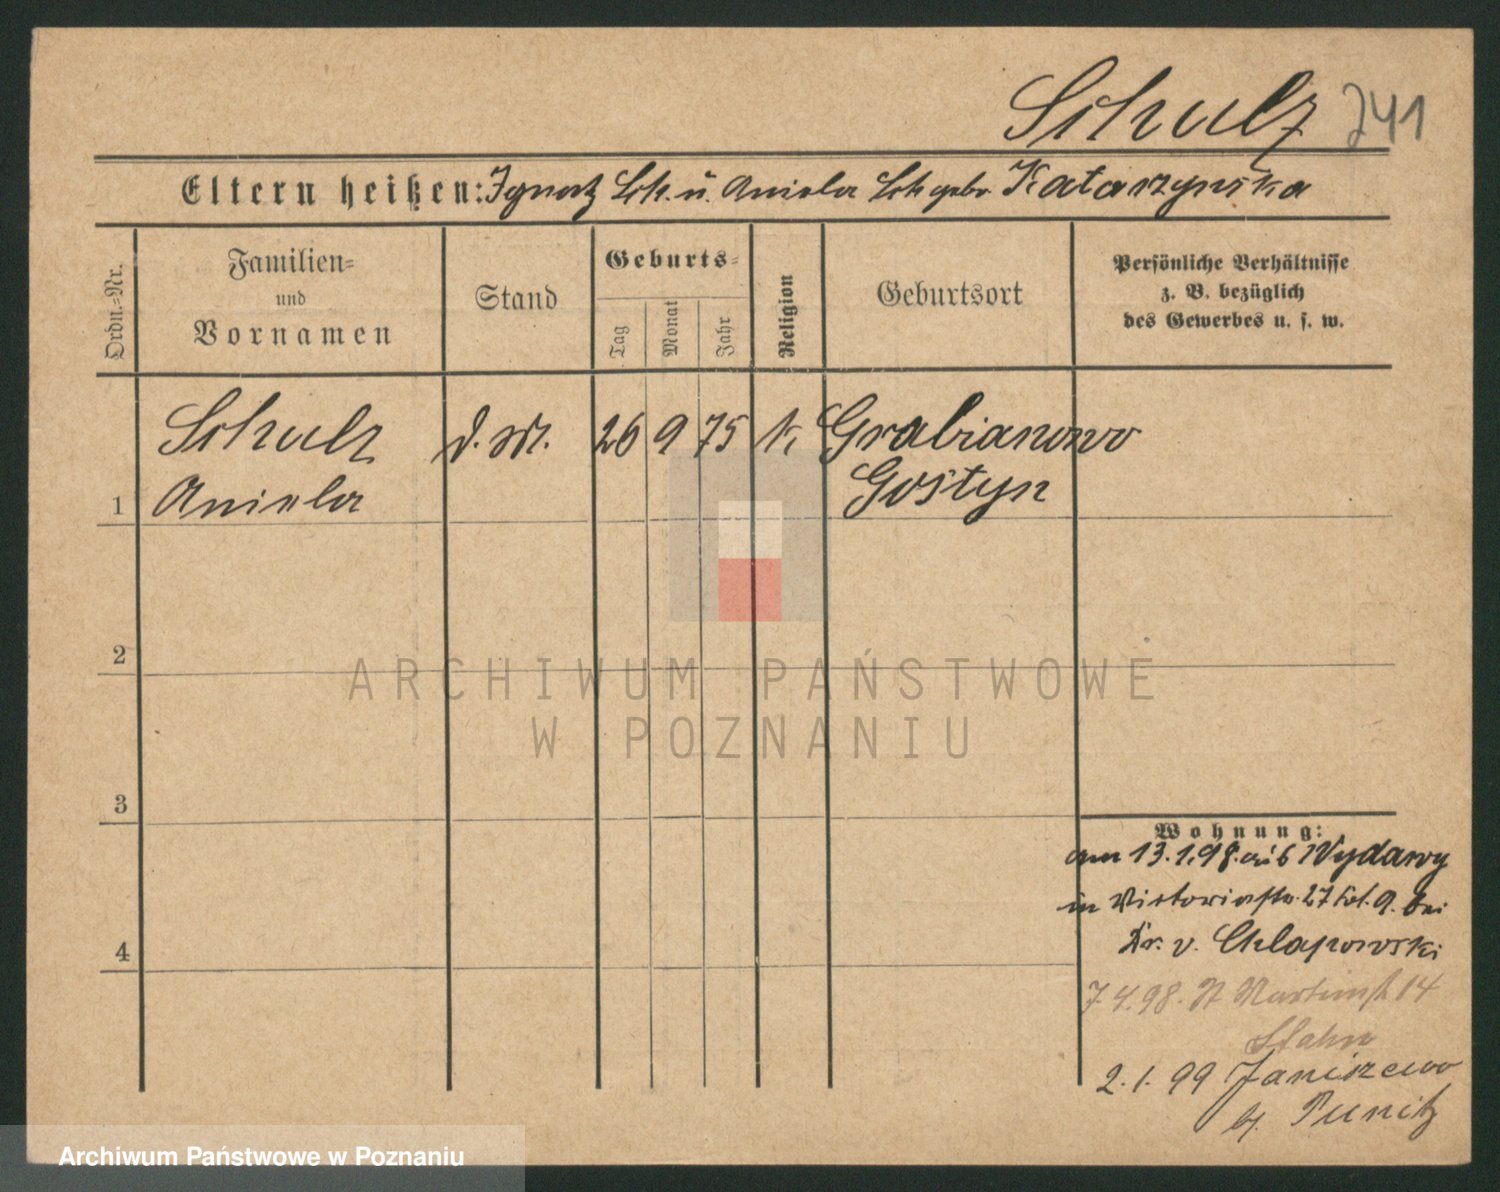 Schulz 741
Eltern heißen: Ignatz Sch. u. Aniela Sch gebr Katarzynska
Ordn.=Nr.
Familien=
und
Vornamen
Stand
Geburts=
Tag
Monat
Jahr
Religion
Geburtsort
Persönliche Verhältnisse
z. B. bezüglich
des Gewerbes u. s. w.
Schulz d. M. 26 9 75 k. Grabianowo
1 Aniela Gostyn
2
ARCHIWUM PAŃSTWOWE
W POZNANIU
3
Wohnung:
am 13.1.98. aus Wydawy
in Victoriastr. 27 bei
Dr. v. Chlapowski
4
7.4.98. St Martinstr 14
2.1.99 Janiszewo
b. Punitz
Archiwum Państwowe w Poznaniu